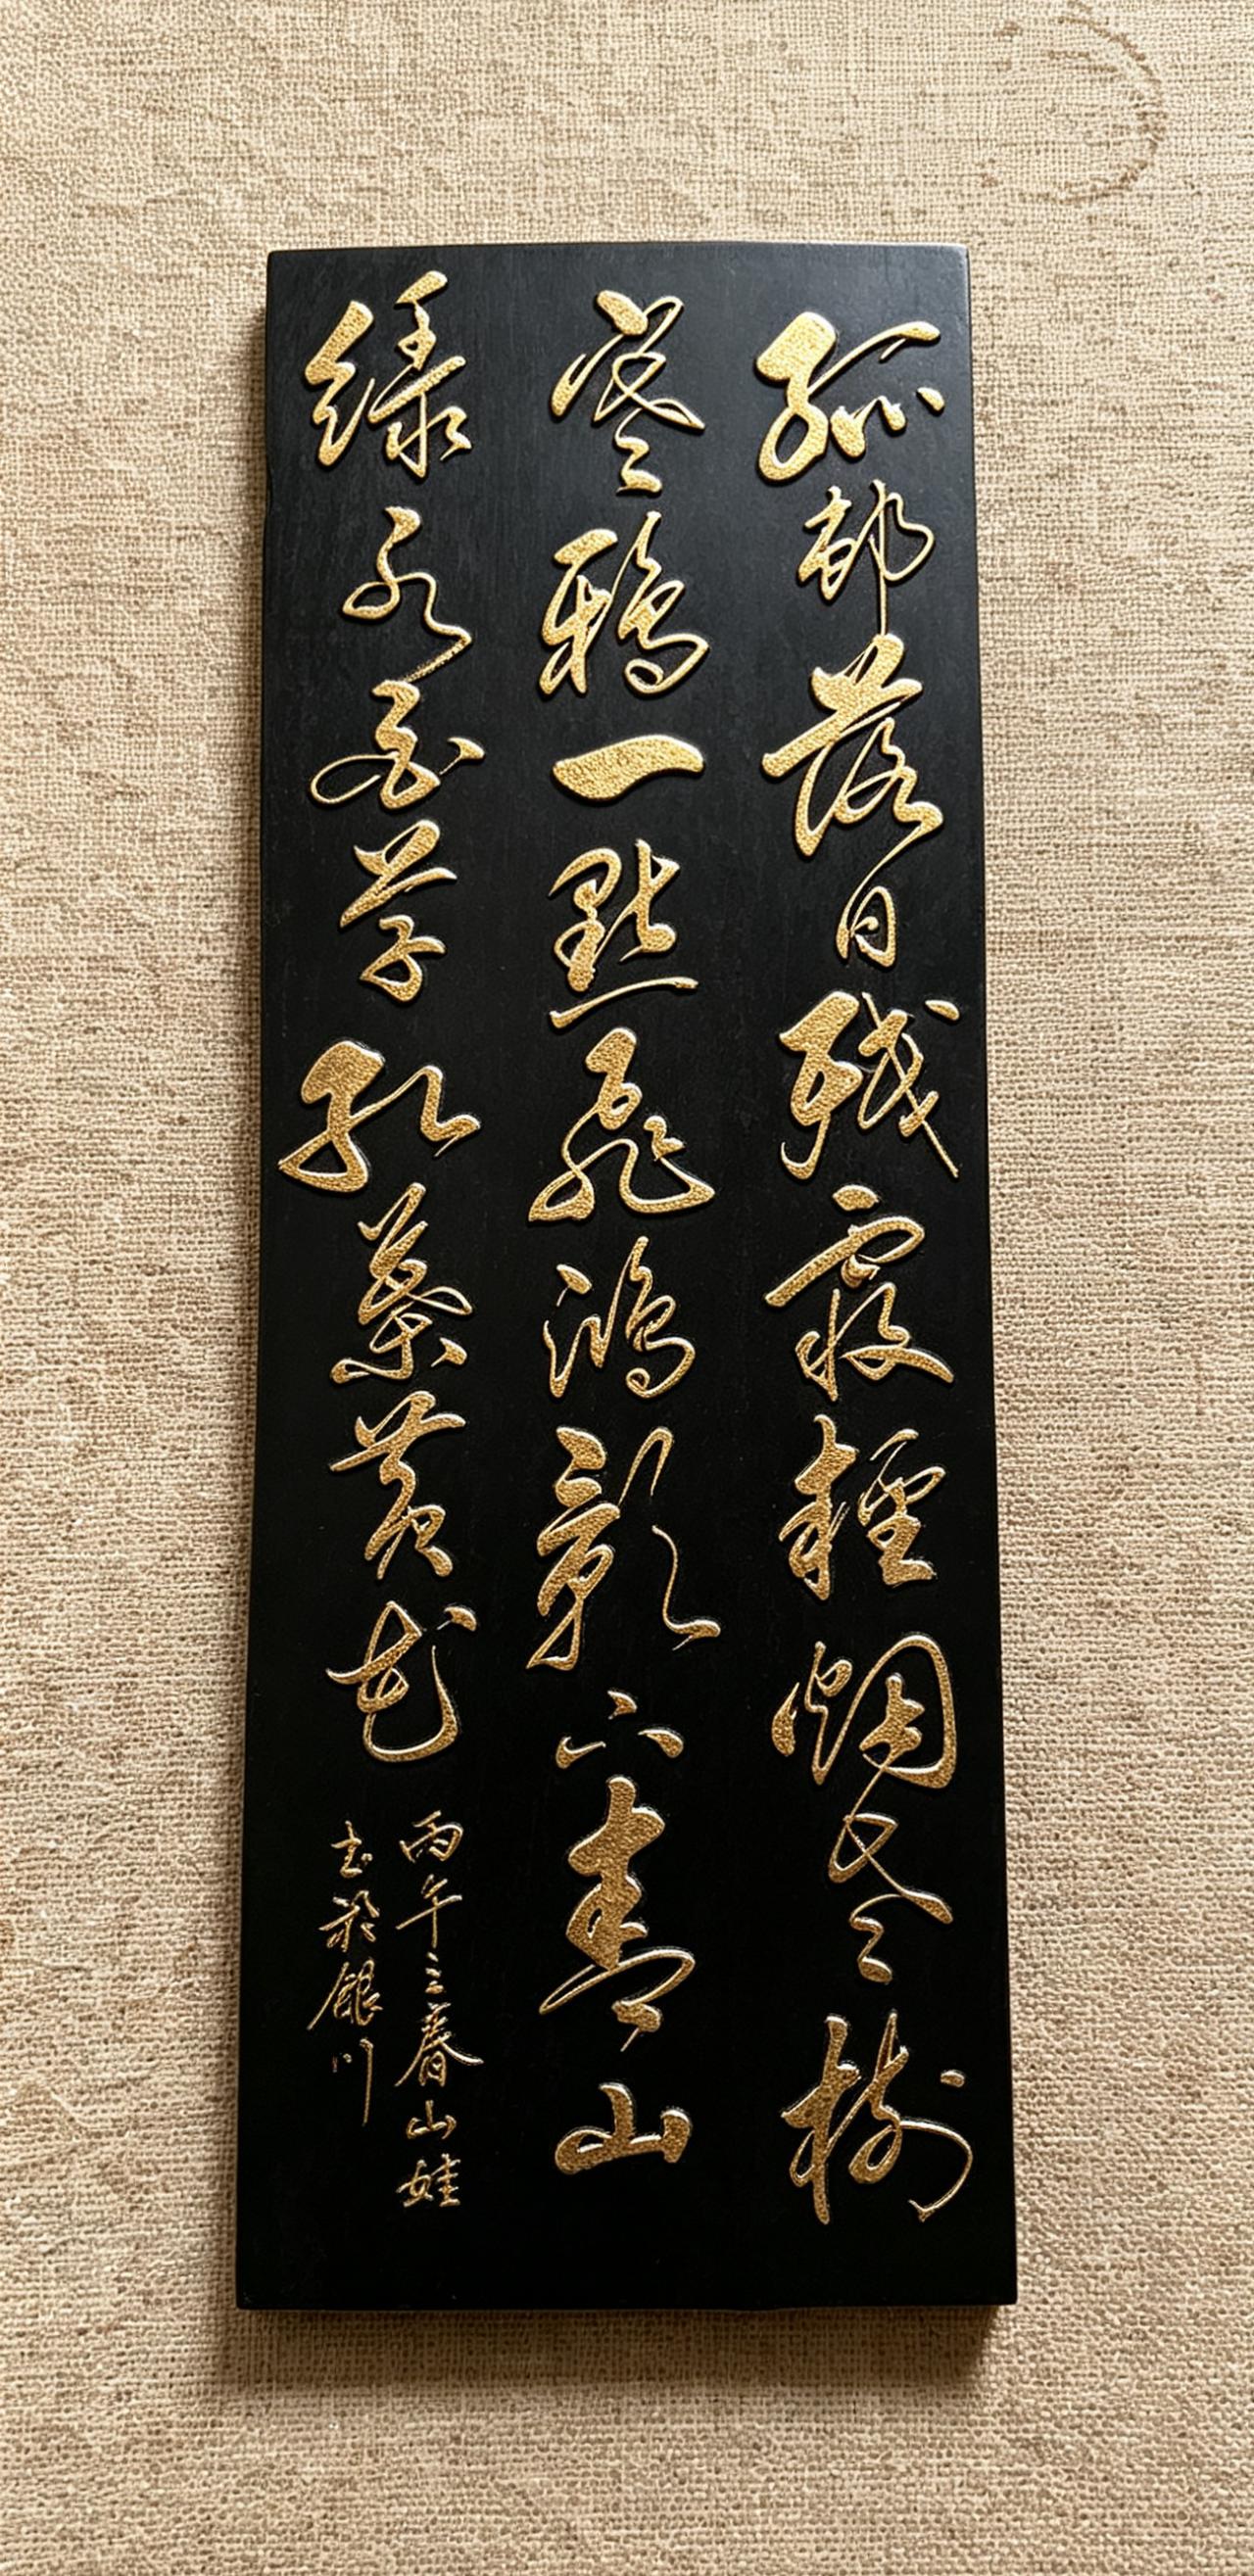 孤邨落日殘霞輕烟老樹
寒鴉一點飛鴻影下青山
綠水白草紅葉黃花
丙午立春山娃
書於銀川